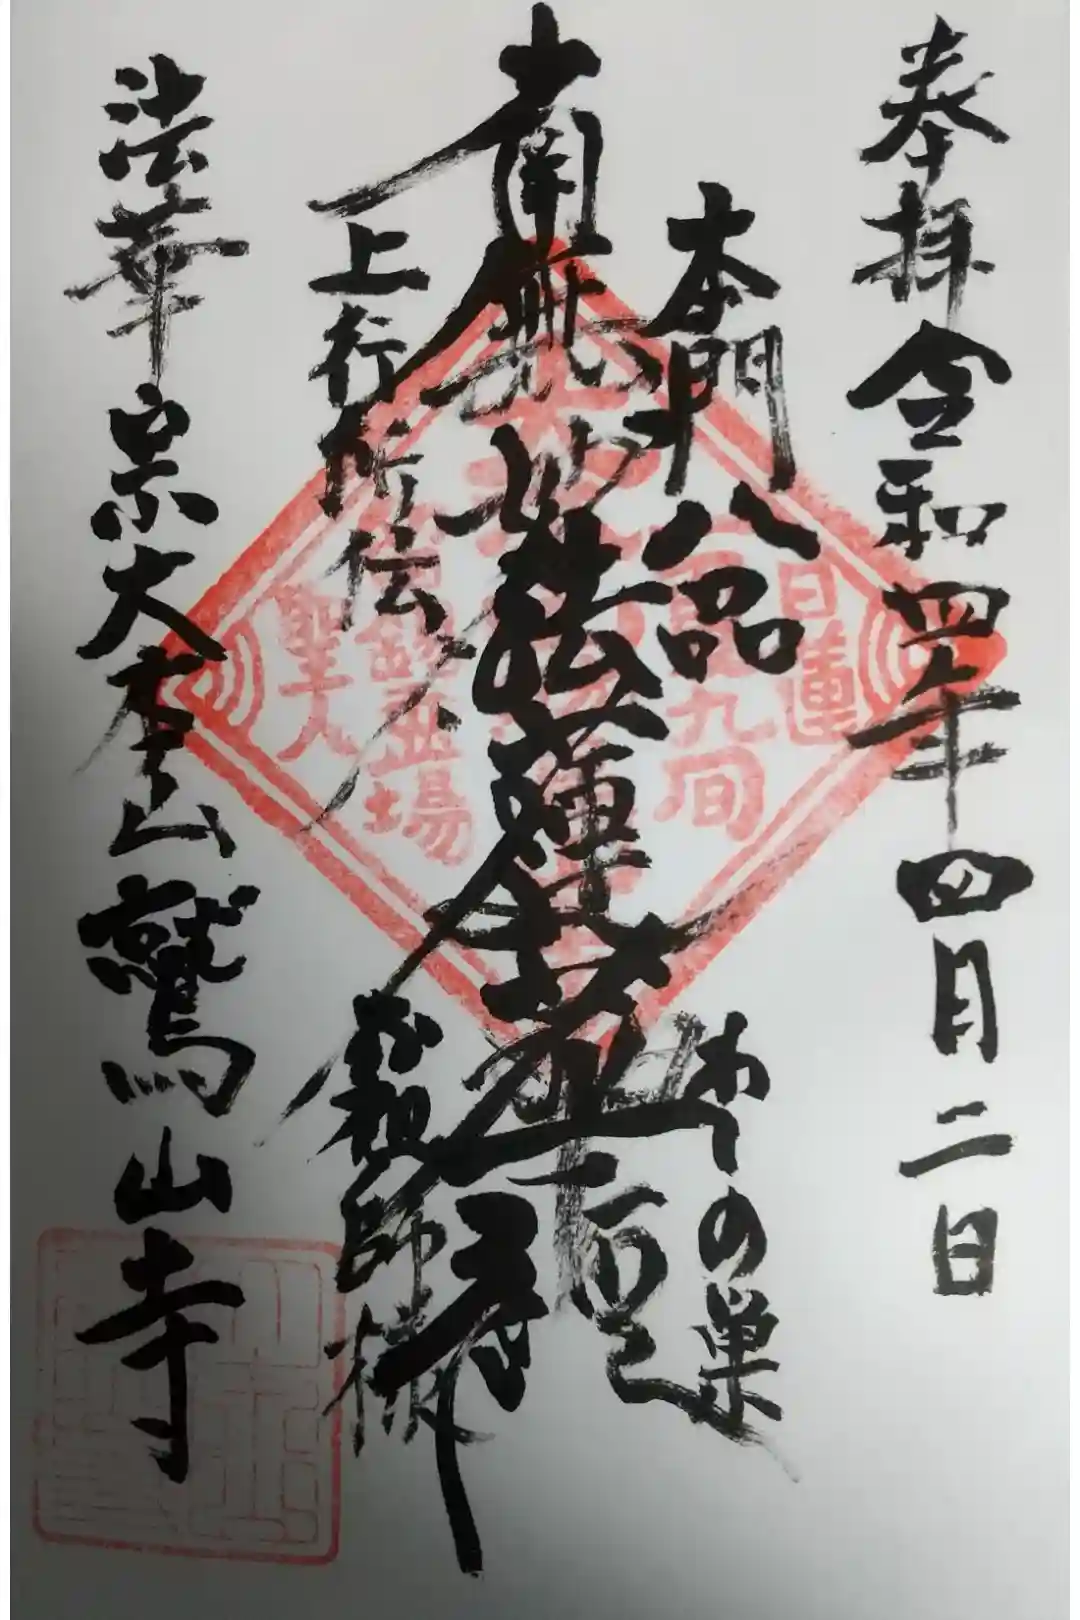 奉拝 令和四年四月二日
本門八品
の巣
南無妙法蓮華経
上行所伝
祖師様
法華宗大本山鷲山寺
日蓮
九間
霊場
聖人